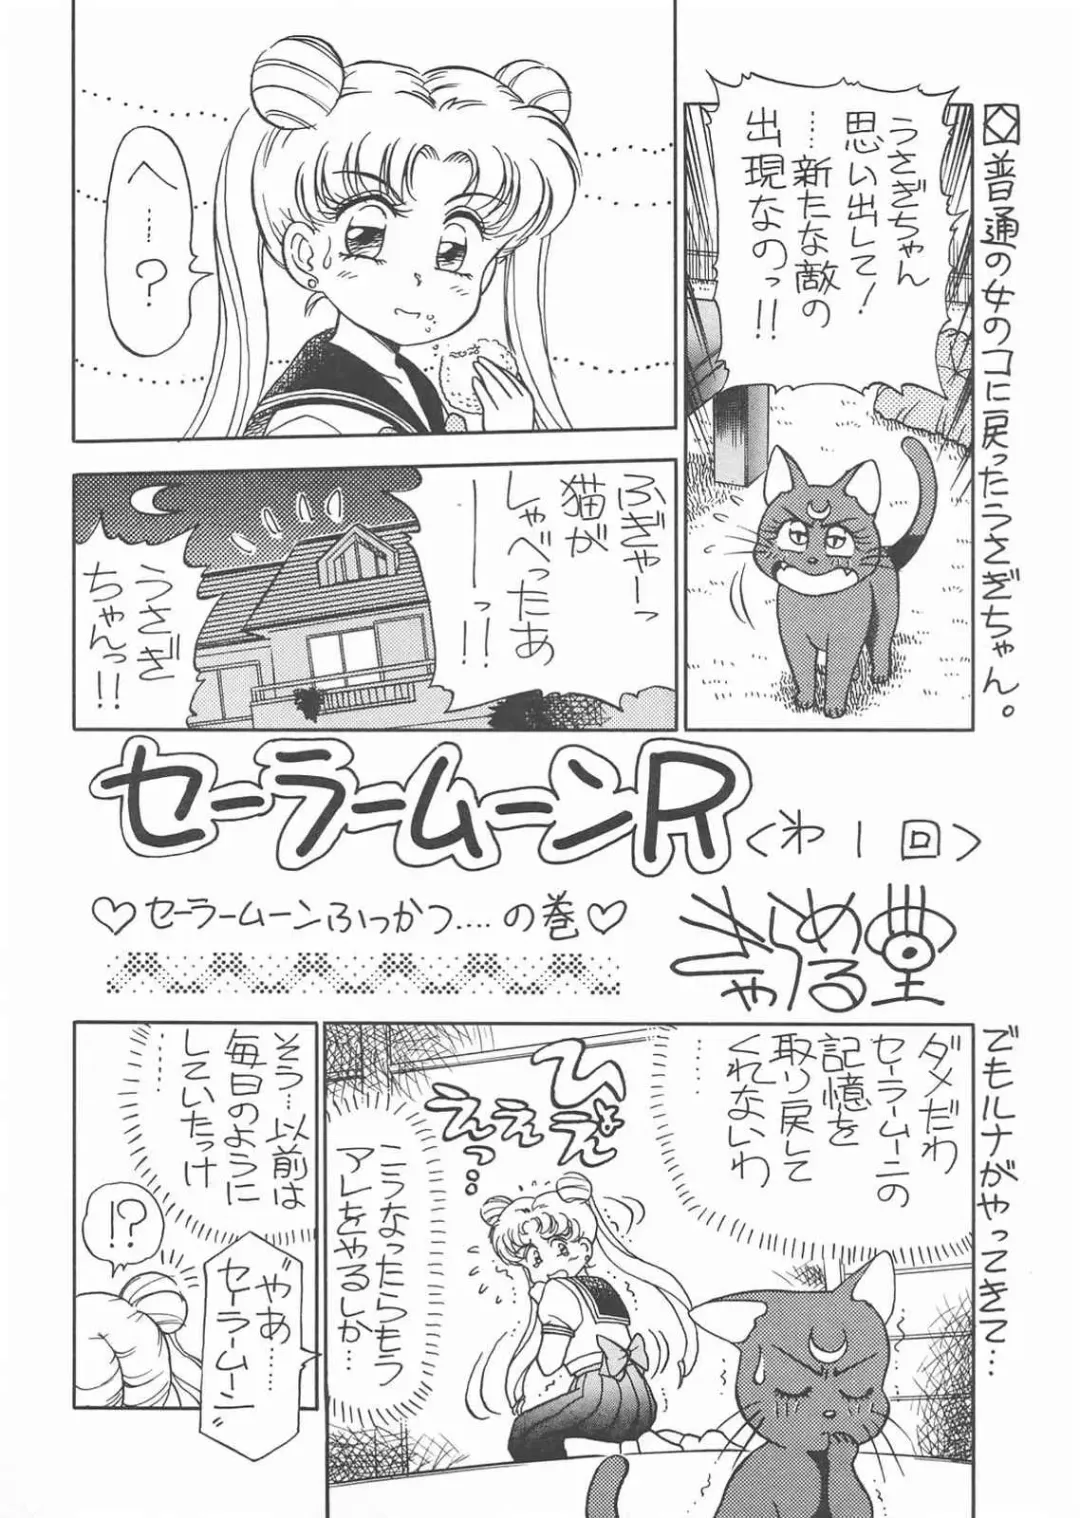 普通の女のコに戻ったうさぎちゃん。
うさぎちゃん
思い出して!
……新たな敵の
出現なのっ!!
へ……?
ふぎゃーっ
猫が
しゃべったあ
ーーっ!!
うさぎ
ちゃんっ!!
セーラームーンR
<わ1回>
♡セーラームーンふっかつ....の巻♡
でもルナがやってきて…
ダメだわ
セーラームーンの
記憶を
取り戻して
くれないわ
ひょえ
ええぇっ…
こうなったらもう
アレをやるしか…
そう…以前は
毎日のように
していたっけ
!?
やあ……
セーラームーン